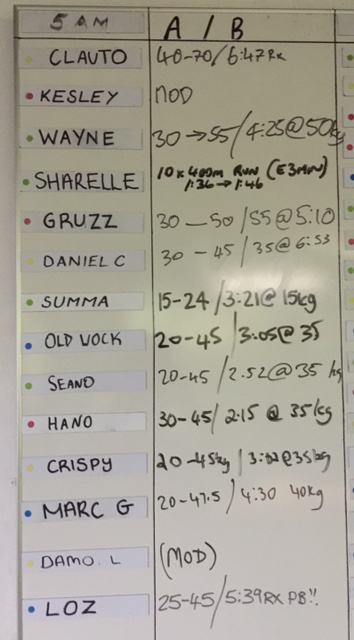 5 AM A / B
CLAUTO 40-70/6:47 Rx
KESLEY MOD
WAYNE 30 → 55/4:25@50kg
SHARELLE 10 x 400m RUN (E3MIN)
1:36 → 1:46
GRUZZ 30 — 50/55@5:10
DANIEL C 30 - 45/35@6:53
SUMMA 15-24/3:21@15kg
OLD VOCK 20-45/3:05@35
SEANO 20-45/2.52@35 kg
HANO 30-45/2:15 @ 35kg
CRISPY 20-45kg/3:02@35kg
MARC G 20-47.5/4:30 40kg
DAMO. L (MOD)
LOZ 25-45/5:39 RX PB!!